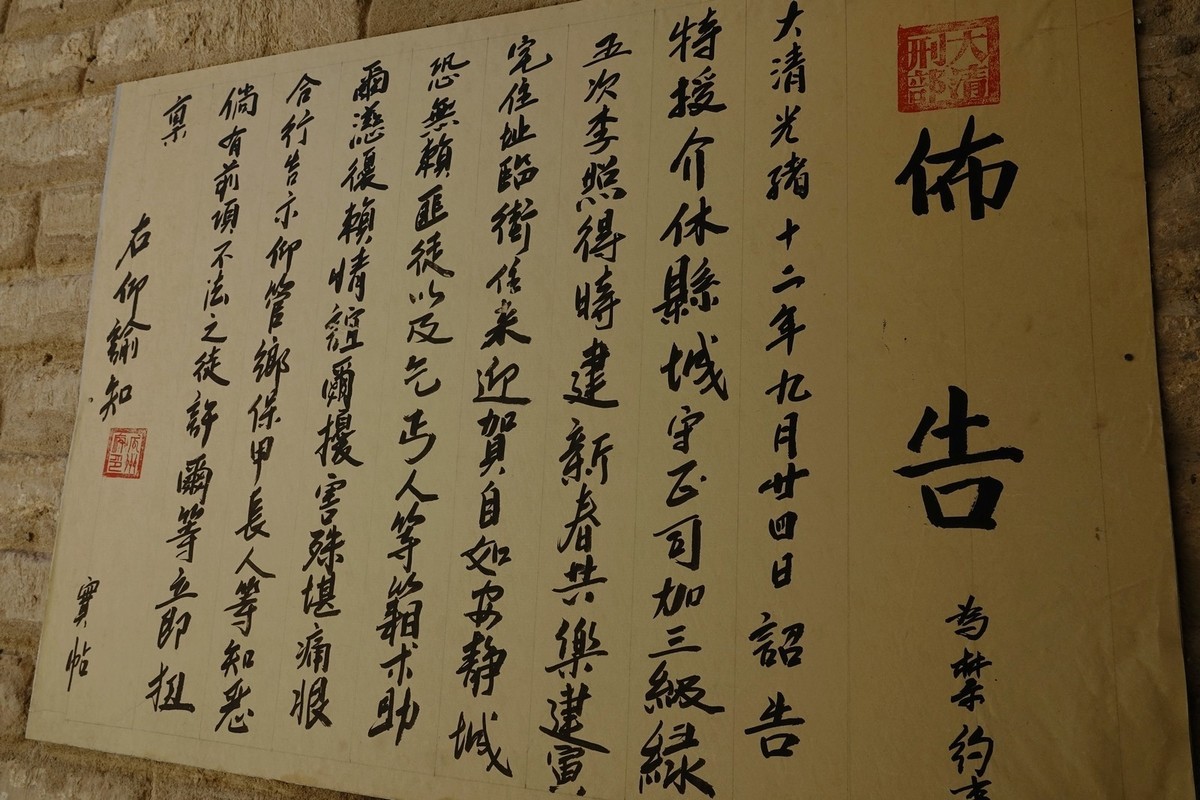 大清刑部
佈告
為禁約
大清光緒十二年九月廿四日詔告
特授介休縣城守正司加三級緑
五次李照得時建新春共樂建寅
完住址臨街任来迎賀自如安静城
恐無賴匪徒以及乞丐人等籍求助
爾滋復賴情誼爾擾害殊堪痛恨
合行告示仰管鄉保甲長人等知悉
倘有前項不法之徒許爾等立即扭
禀
右仰諭知
實帖